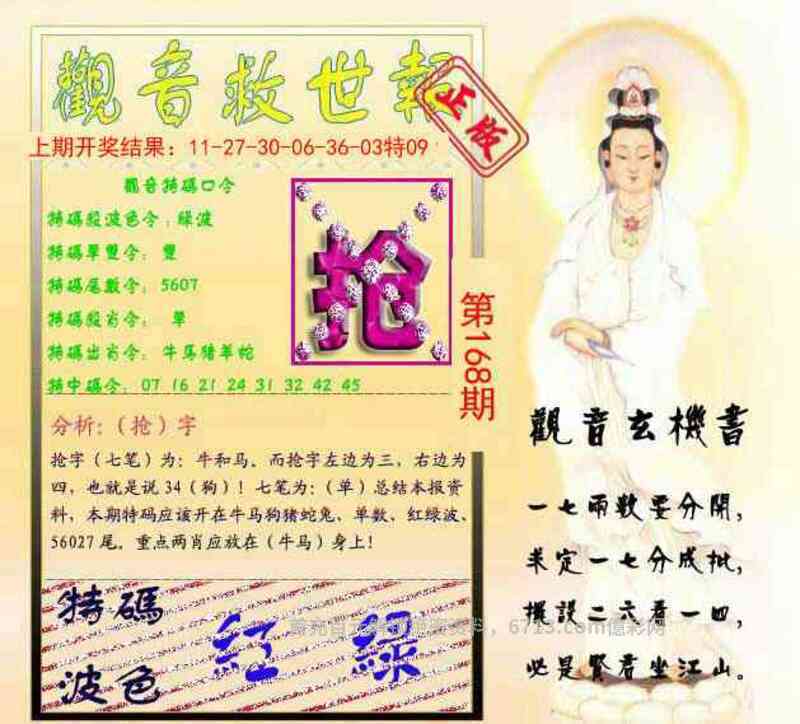 觀音救世報
正版
上期开奖结果：11-27-30-06-36-03特09
觀音特碼口令
特碼殺波色令：綠波
特碼單雙令：雙
特碼尾數令：5607
特碼殺肖令：單
特碼出肖令：牛马猪羊蛇
特中碼令：07 16 21 24 31 32 42 45
抢
第168期
分析：（抢）字
抢字（七笔）为：牛和马。而抢字左边为三，右边为
四，也就是说34（狗）！七笔为：（单）总结本报资
料，本期特码应该开在牛马狗猪蛇兔、单数、红绿波、
56027尾。重点两肖应放在（牛马）身上！
特碼
波色
紅 綠
觀音玄機書
一七兩數要分開，
求定一七分成批，
擺設二六看一四，
必是賢君坐江山。
6713.com億彩网